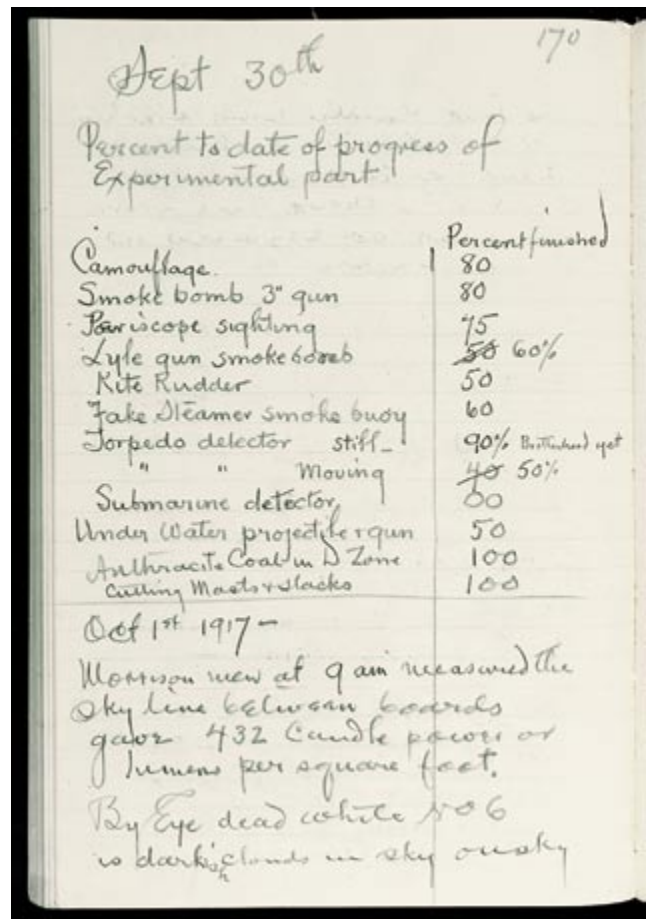 170
Sept 30th
Percent to date of progress of
Experimental part
Percent finished
Camouflage. 80
Smoke bomb 3" gun 80
Periscope sighting 75
Lyle gun smoke bomb 50 60%
Kite Rudder 50
Fake Steamer smoke buoy 60
Torpedo detector still- 90% yet
" " Moving 40 50%
Submarine detector 00
Under Water projectile & gun 50
Anthracite Coal in D Zone 100
Cutting Masts & Stacks 100
Oct 1st 1917-
Morrison new at 9 am measured the
sky line between boards
gave 432 Candle power or
lumens per square foot.
By Eye dead white No 6
is darkish clouds in sky on sky